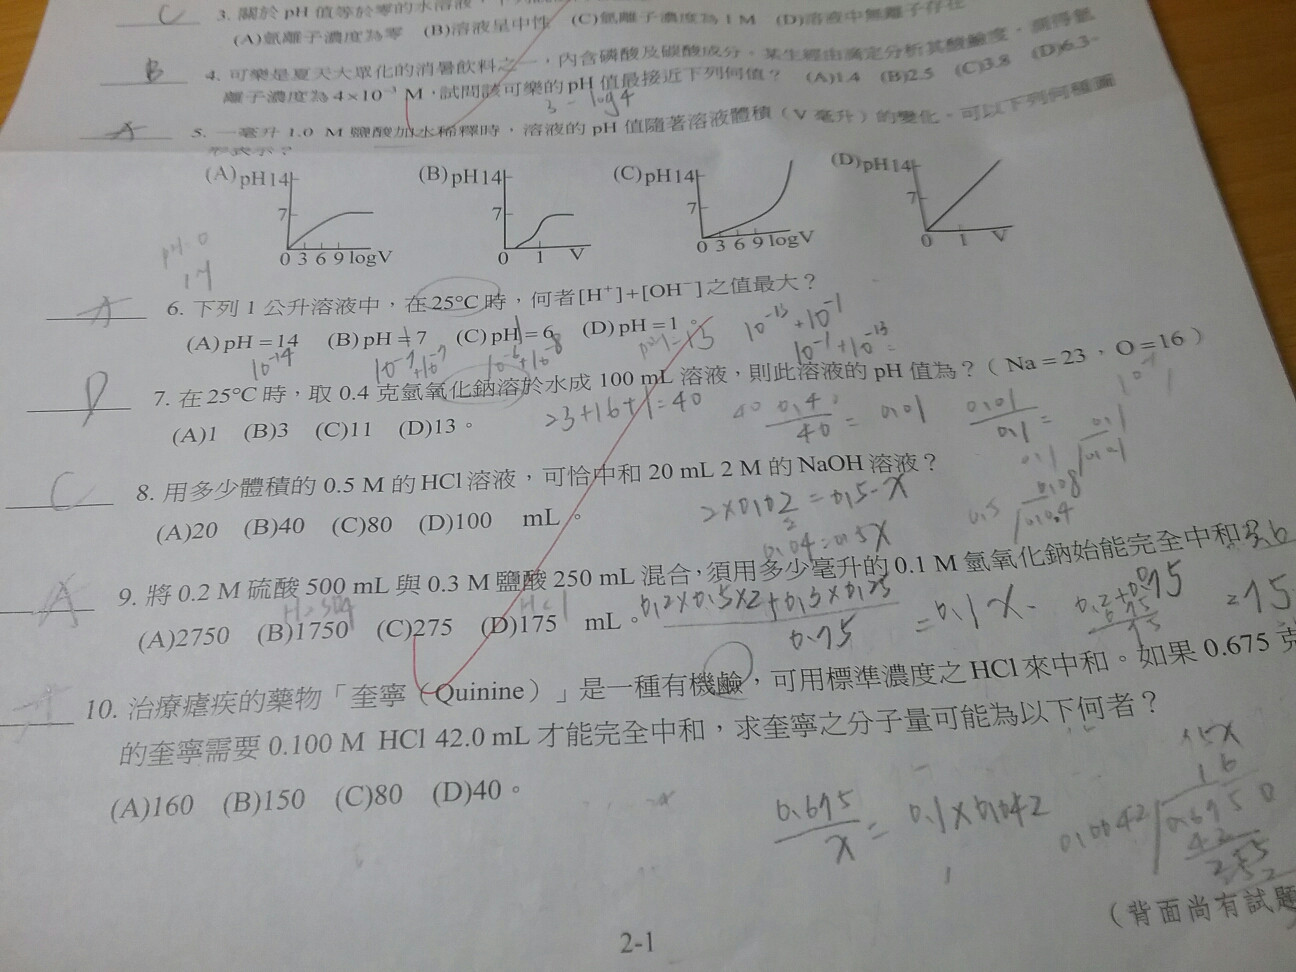 C 3. 關於 pH 值等於零的水溶液，下列
(A)氫離子濃度為零 (B)溶液呈中性 (C)氫離子濃度為 1 M (D)溶液中無離子存在
B 4. 可樂是夏天大眾化的消暑飲料之一，內含磷酸及碳酸成分。某生經由滴定分析其酸鹼度，測得氫
離子濃度為 4×10⁻³ M，試問該可樂的 pH 值最接近下列何值？ (A)1.4 (B)2.5 (C)3.8 (D)6.3。
3 - log4
A 5. 一毫升 1.0 M 鹽酸加水稀釋時，溶液的 pH 值隨著溶液體積（V 毫升）的變化，可以下列何種圖
形表示？
(A) pH14 7 0 3 6 9 logV
(B) pH14 7 0 1 V
(C) pH14 7 0 3 6 9 logV
(D) pH14 7 0 1 V
pH=0
14
A 6. 下列 1 公升溶液中，在25°C時，何者[H⁺]+[OH⁻]之值最大？
(A) pH = 14 (B) pH = 7 (C) pH = 6 (D) pH = 1 。
10⁻¹⁴ 10⁻⁷+10⁻⁷ 10⁻⁶+10⁻⁸ 10⁻¹³+10⁻¹
10⁻¹+10⁻¹³=
D 7. 在25°C時，取 0.4 克氫氧化鈉溶於水成 100 mL 溶液，則此溶液的 pH 值為？（ Na = 23 ，O = 16 ）
23+16+1=40 40 0.4/40 = 0.01 0.01/0.1 = 0.1
(A)1 (B)3 (C)11 (D)13。
C 8. 用多少體積的 0.5 M 的 HCl 溶液，可恰中和 20 mL 2 M 的 NaOH 溶液？
(A)20 (B)40 (C)80 (D)100 mL。
2×0.02 = 0.5·x
0.04=0.5x
0.08
0.5
0.04
A 9. 將 0.2 M 硫酸 500 mL 與 0.3 M 鹽酸 250 mL 混合，須用多少毫升的 0.1 M 氫氧化鈉始能完全中和
H₂SO₄ HCl
(A)2750 (B)1750 (C)275 (D)175 mL。
0.2×0.5×2+0.3×0.25/0.75 = 0.1x
10. 治療瘧疾的藥物「奎寧（Quinine）」是一種有機鹼，可用標準濃度之 HCl 來中和。如果 0.675 克
的奎寧需要 0.100 M HCl 42.0 mL 才能完全中和，求奎寧之分子量可能為以下何者？
(A)160 (B)150 (C)80 (D)40。
0.675/x = 0.1×0.042
16
0.0042
42
255
2-1
（背面尚有試題